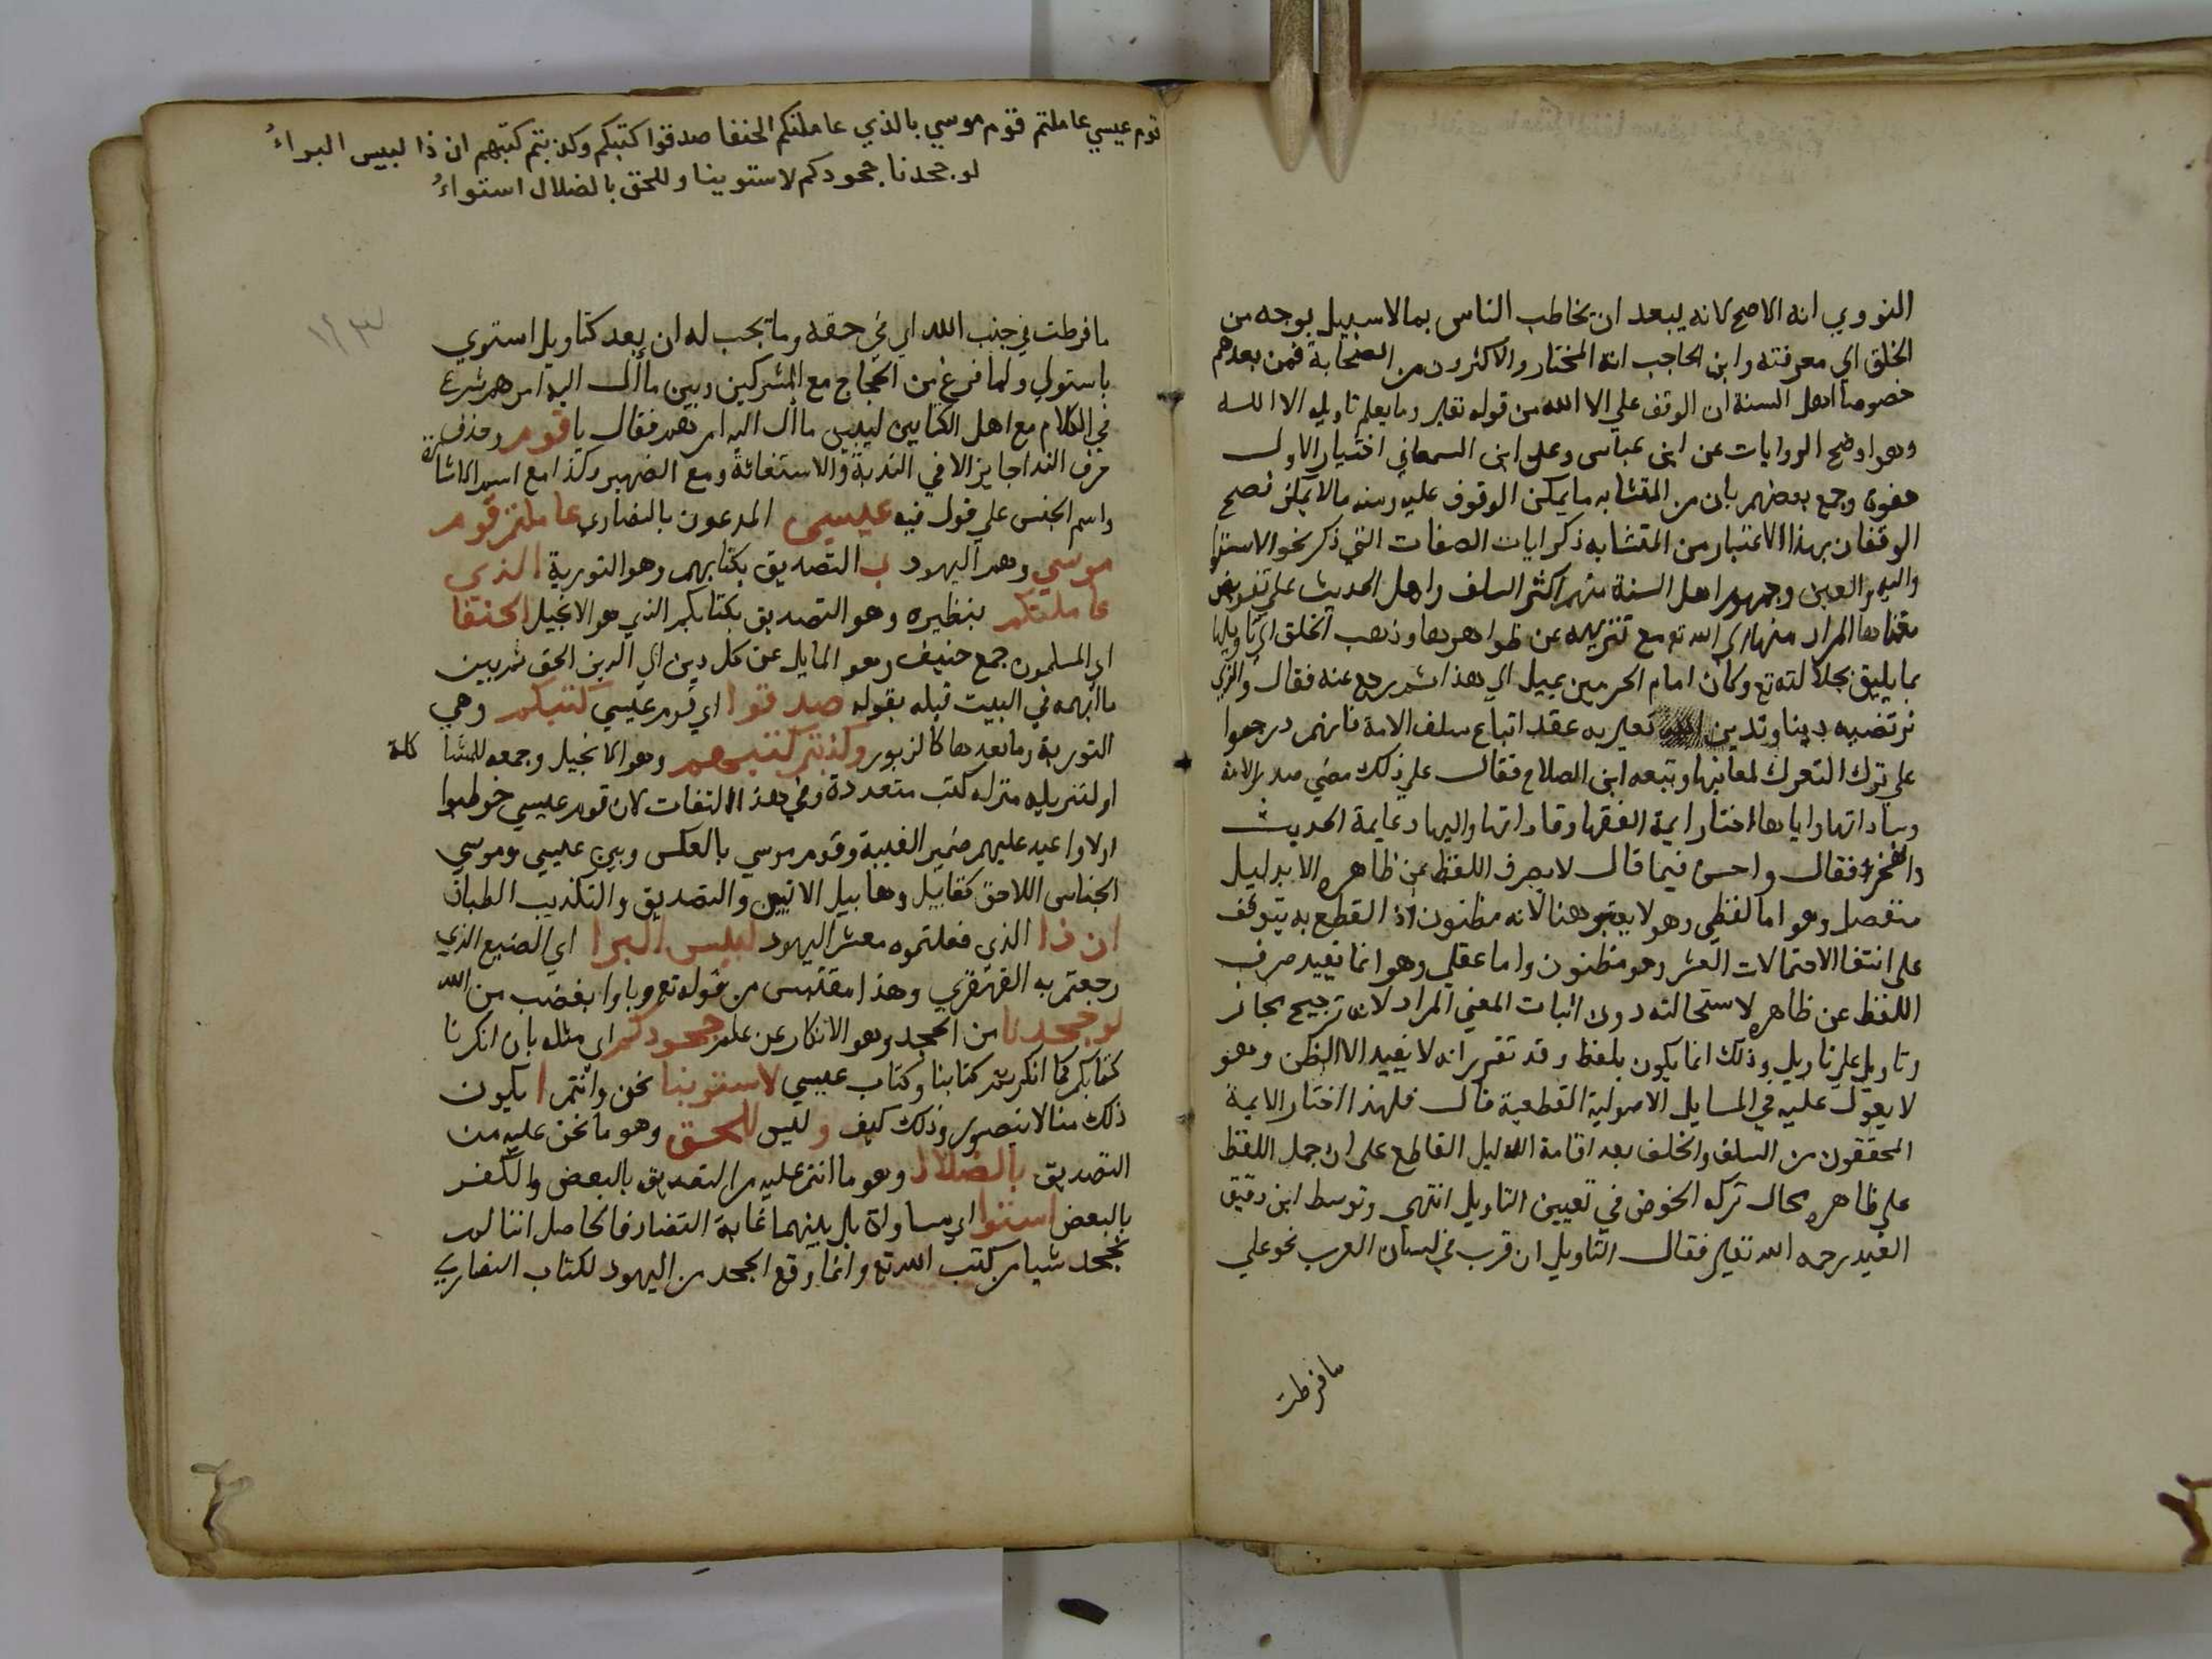 النووي انه الاصح لانه يبعد ان يخاطب الناس بما لا سبيل بوجه من
الخلق الي معرفته وابن الحاجب انه المختار والاكثرون من الصحابة فمن بعدهم
خصوصا اهل السنة ان الوقف علي الا الله من قوله تعالى وما يعلم تاويله الا الله
وهو اوضح الروايات عن ابن عباس وعلى ابن السمعاني اختيار الاول
هفوة وجمع بعضهم بان من المتشابه ما يمكن الوقوف عليه ومنه ما لا يمكن فصح
الوقفان بهذا الاعتبار من المتشابه ذكر ايات الصفات التي ذكر نحو الاستوا
واليد والعين وجمهور اهل السنة منهم اكثر السلف واهل الحديث علي تفويض
معناها المراد منها الي الله تع مع تنزيهه عن ظواهرها وذهب الخلق الي تاويلها
بما يليق بجلالته تع وكان امام الحرمين يميل الي هذا ثم رجع عنه فقال والذي
نرتضيه دينا وندين الله تعالى به عقد اتباع سلف الامة فانهم درجوا
على ترك التعرك لمعانيها وتبعه ابن الصلاح فقال علي ذلك مضي صدر الامة
وساداتها واياها اختار ايمة الفقها وقاداتها واليها دعا يمة الحديث
والفخر فقال واحسن فيما قال لا يصرف اللفظ عن ظاهره الا بدليل
منفصل وهو اما لفظي وهو لا يعتبر هنا لانه مظنون اذ القطع به يتوقف
على انتفا الاحتمالات العشر وهو مظنون واما عقلي وهو انما يفيد صرف
اللفظ عن ظاهره لاستحالته دون اثبات المعني المراد لانه ترجيح مجاز
وتاويل على تاويل وذلك انما يكون بلفظ وقد تقرر انه لا يفيد الا الظن وهو
لا يعول عليه في المسايل الاصولية القطعية قال فلهذا اختار الايمة
المحققون من السلف والخلف بعد اقامة الدليل القاطع على ان حمل اللفظ
علي ظاهره محال ترك الخوض في تعيين التاويل انتهى وتوسط ابن دقيق
العيد رحمه الله تعالى فقال التاويل ان قرب في لسان العرب نحو علي
ما فرطت
قوم عيسي عاملتم قوم موسي بالذي عاملتكم الحنفا صدقوا كتبكم وكذبتم كتبهم ان ذا لبيس البراءُ
لو جحدنا جحودكم لاستوينا وللحق بالضلال استواءُ
١٢٣
ما فرطت في جنب الله اي في حقه وما يجب له ان بعد كتاويل استوي
باستولي ولما فرغ من الحجاج مع المشركين وبين ما ال اليه امرهم شرع
في الكلام مع اهل الكتابين ليبين ما ال اليه امرهم فقال يا قوم وحذف
حرف الندا جايز الا في الندبة والاستغاثة ومع الضمير وكذا مع اسم الاشارة
واسم الجنس علي قول فيه عيسي المدعون بالنصاري عاملتم قوم
موسي وهم اليهود ب التصديق بكتابهم وهو التورية الذي
عاملتكم بنظيره وهو التصديق بكتابكم الذي هو الانجيل الحنفا
اي المسلمون جمع حنيف وهو المايل عن كل دين الي الدين الحق ثم بين
ما ابهمه في البيت قبله بقوله صدقوا اي قوم عيسي كتبكم وهي
التورية وما بعدها كالزبور وكذبتم كتبهم وهو الانجيل وجمعه للمشا كلة
او لتنزيله منزلة كتب متعددة وفي هذا التفات لان قوم عيسي خوطبوا
اولا واعيد عليهم ضمير الغيبة وقوم موسي بالعكس وبين عيسي وموسي
الجناس اللاحق كقابيل وهابيل الاتيين والتصديق والتكذيب الطباق
ان ذا الذي فعلتموه معشر اليهود لبيس البرا اي الصنيع الذي
رجعتم به القهقري وهذا مقتبس من قوله تع وباوا بغضب من الله
لو جحدنا من الجحد وهو الانكار عن علم جحودكم اي مثله بان انكرنا
كتابكم كما انكرتم كتابنا وكتاب عيسي لاستوينا نحن وانتم ا يكون
ذلك منا لا يتصور وذلك كيف و ليس للحق وهو ما نحن عليه من
التصديق بالضلال وهو ما انتم عليه من التصديق بالبعض والكفر
بالبعض استوا اي مساواة بل بينهما غاية التضاد فالحاصل اننا لم
نجحد شيا من كتب الله تع وانما وقع الجحد من اليهود لكتاب النصاري